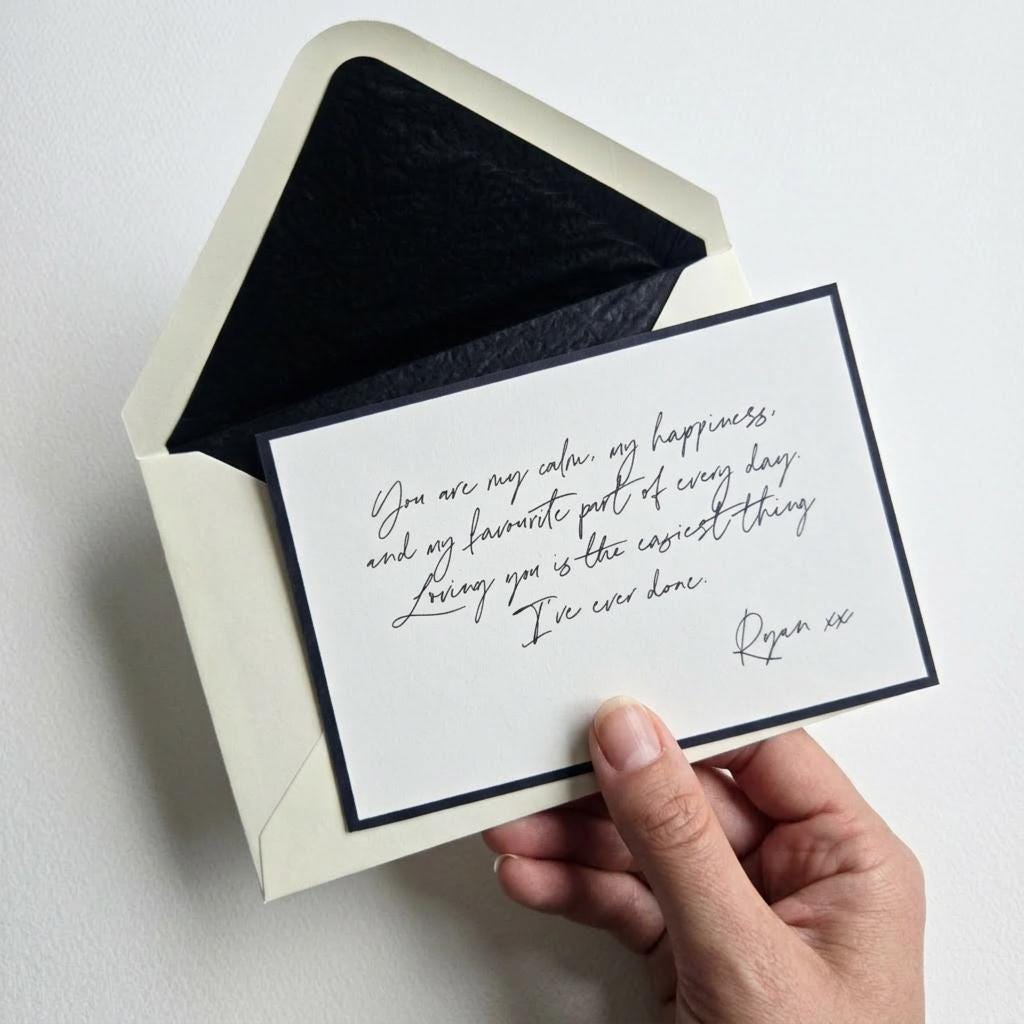 You are my calm, my happiness,
and my favourite part of every day.
Loving you is the easiest thing
I've ever done.
Ryan xx